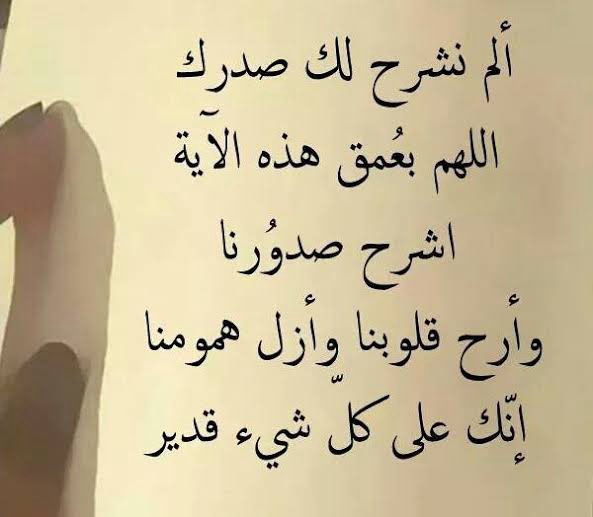 ألم نشرح لك صدرك
اللهم بعُمق هذه الآية
اشرح صدوُرنا
وأرح قلوبنا وأزل همومنا
إنّك على كلّ شيء قدير